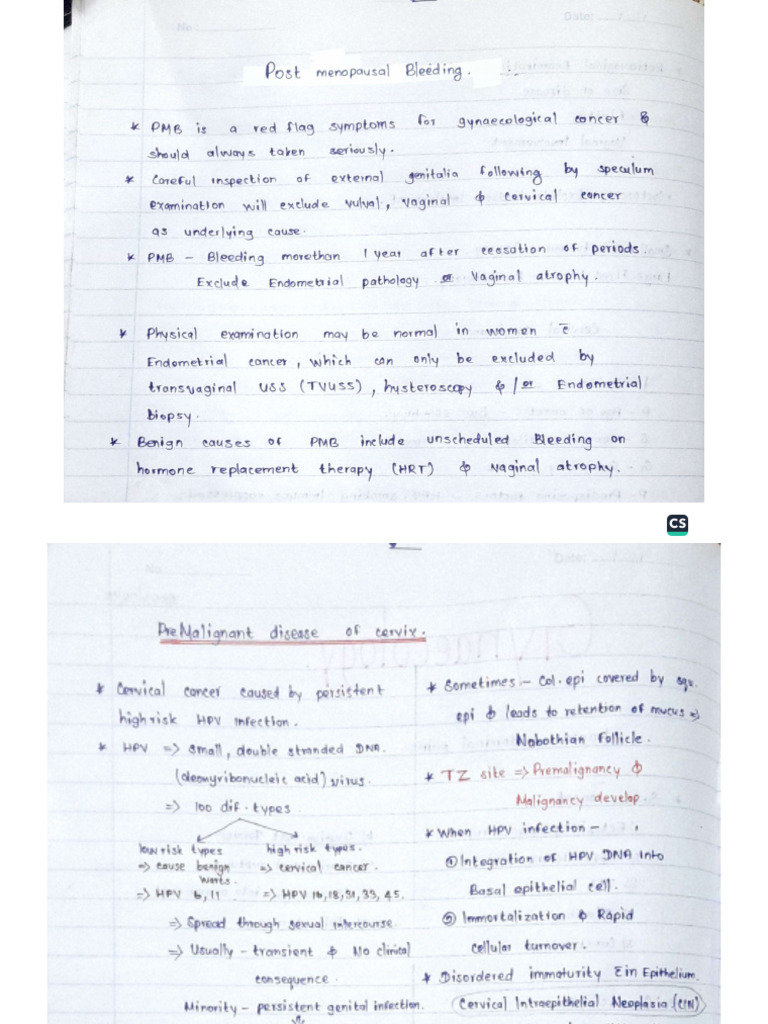 No:
Date:
Post menopausal Bleeding.
* PMB is a red flag symptoms for gynaecological cancer &
should always taken seriously.
* Careful inspection of external genitalia following by speculum
examination will exclude vulval, vaginal & cervical cancer
as underlying cause.
* PMB - Bleeding morethan 1 year after cessation of periods.
Exclude Endometrial pathology or vaginal atrophy.
* Physical examination may be normal in women c̄
Endometrial cancer, which can only be excluded by
transvaginal USS (TVUSS), hysteroscopy & / or Endometrial
biopsy.
* Benign causes of PMB include unscheduled Bleeding on
hormone replacement therapy (HRT) & vaginal atrophy.
CS
No.
Date:
PreMalignant disease of cervix.
* Cervical cancer caused by persistent
high risk HPV infection.
* HPV => small, double stranded DNA.
(deoxyribonucleic acid) virus.
=> 100 dif. types
low risk types high risk types.
=> cause benign => cervical cancer.
warts.
=> HPV 6, 11 => HPV 16, 18, 31, 33, 45.
=> Spread through sexual intercourse.
=> Usually - transient & No clinical
consequence.
Minority - persistent genital infection.
* Sometimes - Col. epi covered by sqv.
epi & leads to retention of mucus =>
Nabothian Follicle.
* TZ site => Premalignancy &
Malignancy develop.
* When HPV infection -
① Integration of HPV DNA into
Basal epithelial cell.
② Immortalization & Rapid
cellular turnover.
* Disordered immaturity in Epithelium.
Cervical Intraepithelial Neoplasia (CIN)